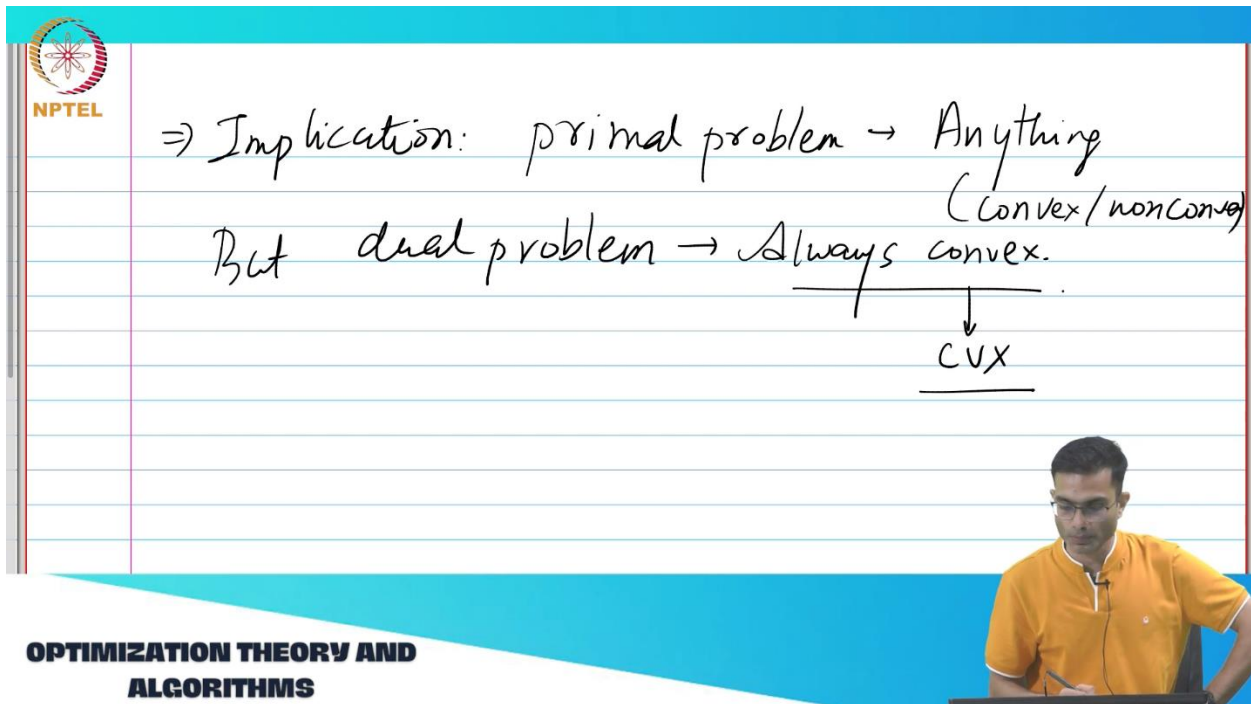 NPTEL
⇒ Implication: primal problem → Anything
(convex/nonconve)
But dual problem → Always convex.
↓
CVX
OPTIMIZATION THEORY AND
ALGORITHMS